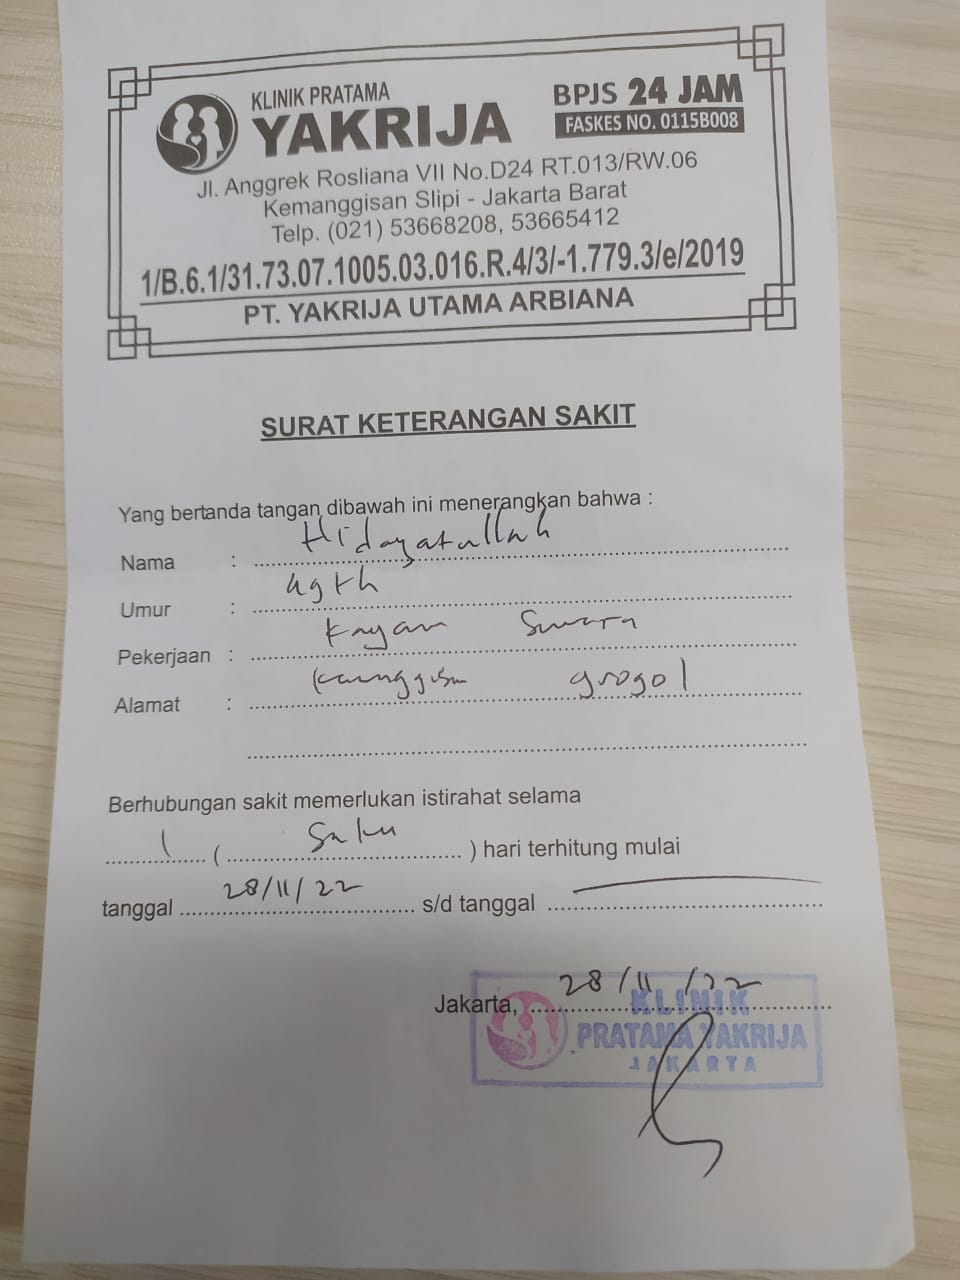 KLINIK PRATAMA
YAKRIJA
BPJS 24 JAM
FASKES NO. 0115B008
Jl. Anggrek Rosliana VII No.D24 RT.013/RW.06
Kemanggisan Slipi - Jakarta Barat
Telp. (021) 53668208, 53665412
1/B.6.1/31.73.07.1005.03.016.R.4/3/-1.779.3/e/2019
PT. YAKRIJA UTAMA ARBIANA
SURAT KETERANGAN SAKIT
Yang bertanda tangan dibawah ini menerangkan bahwa :
Nama : Hidayatullah
Umur :
Pekerjaan :
Alamat : grogol
Berhubungan sakit memerlukan istirahat selama
1 ( Satu ) hari terhitung mulai
tanggal 28/11/22 s/d tanggal
Jakarta, 28/11/22
KLINIK
PRATAMA YAKRIJA
JAKARTA